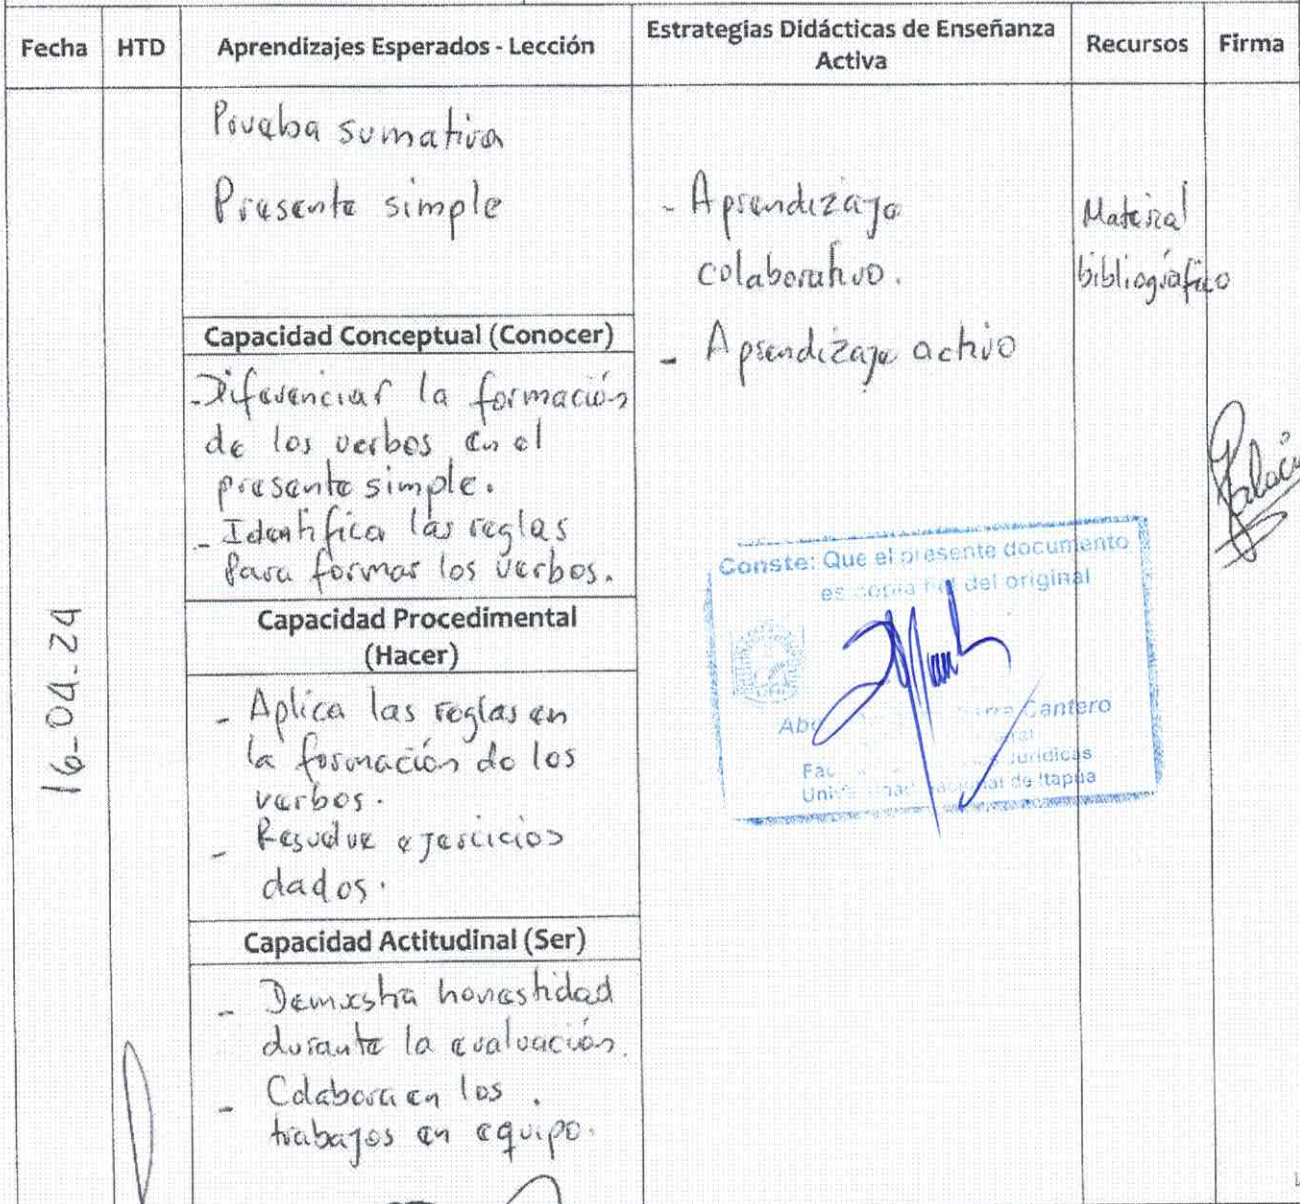 Fecha HTD Aprendizajes Esperados - Lección Estrategias Didácticas de Enseñanza Activa Recursos Firma
16-04-24
Prueba sumativa
Presente simple
Capacidad Conceptual (Conocer)
- Diferenciar la formación
de los verbos en el
presente simple.
- Identifica las reglas
para formar los verbos.
Capacidad Procedimental
(Hacer)
- Aplica las reglas en
la formación de los
verbos.
- Resuelve ejercicios
dados.
Capacidad Actitudinal (Ser)
- Demuestra honestidad
durante la evaluación.
- Colabora en los
trabajos en equipo.
- Aprendizaje
colaborativo.
- Aprendizaje activo
Material
bibliográfico
Conste: Que el presente documento
es copia fiel del original
Cantero
Jurídicas
Universidad Nacional de Itapúa